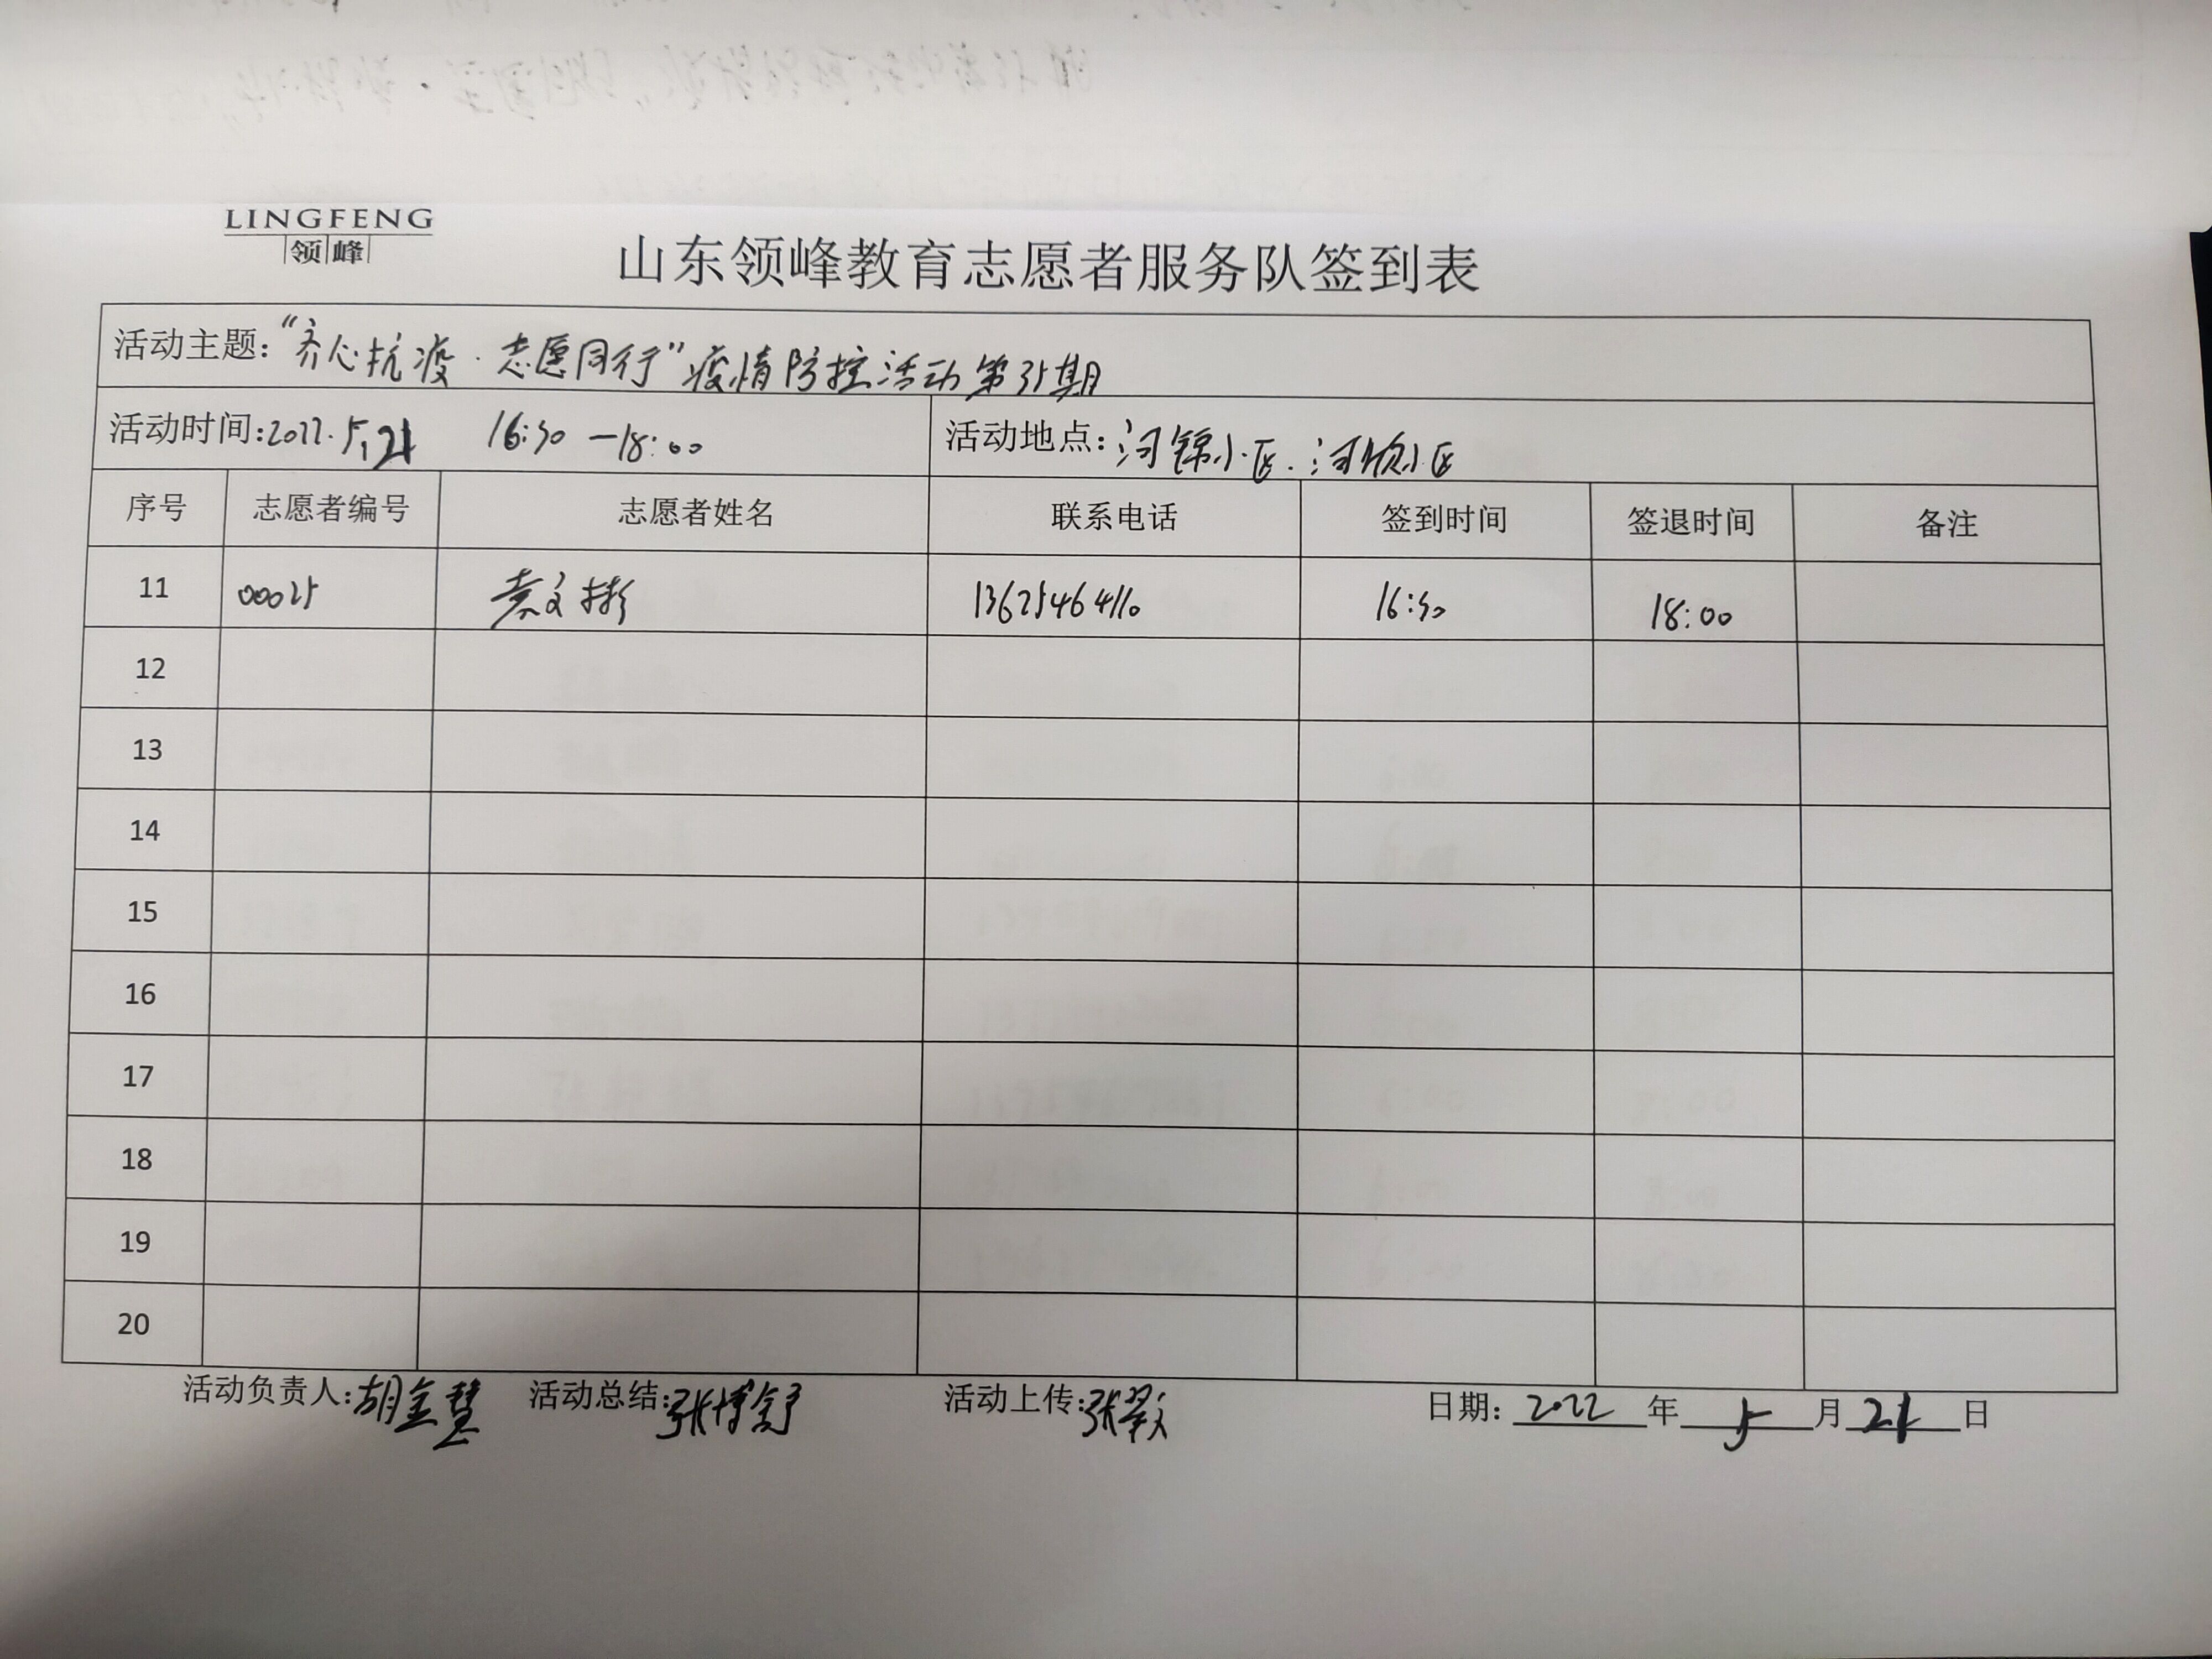 LINGFENG
领峰
山东领峰教育志愿者服务队签到表
活动主题:“齐心抗疫·志愿同行”疫情防控活动第35期
活动时间:2022.5.21 16:30—18:00 活动地点:河锦小区.河欣小区
序号 志愿者编号 志愿者姓名 联系电话 签到时间 签退时间 备注
11 00025 袁文彬 13625464110 16:30 18:00
12
13
14
15
16
17
18
19
20
活动负责人:胡金慧 活动总结:张博 活动上传:张 日期: 2022 年 5 月 21 日